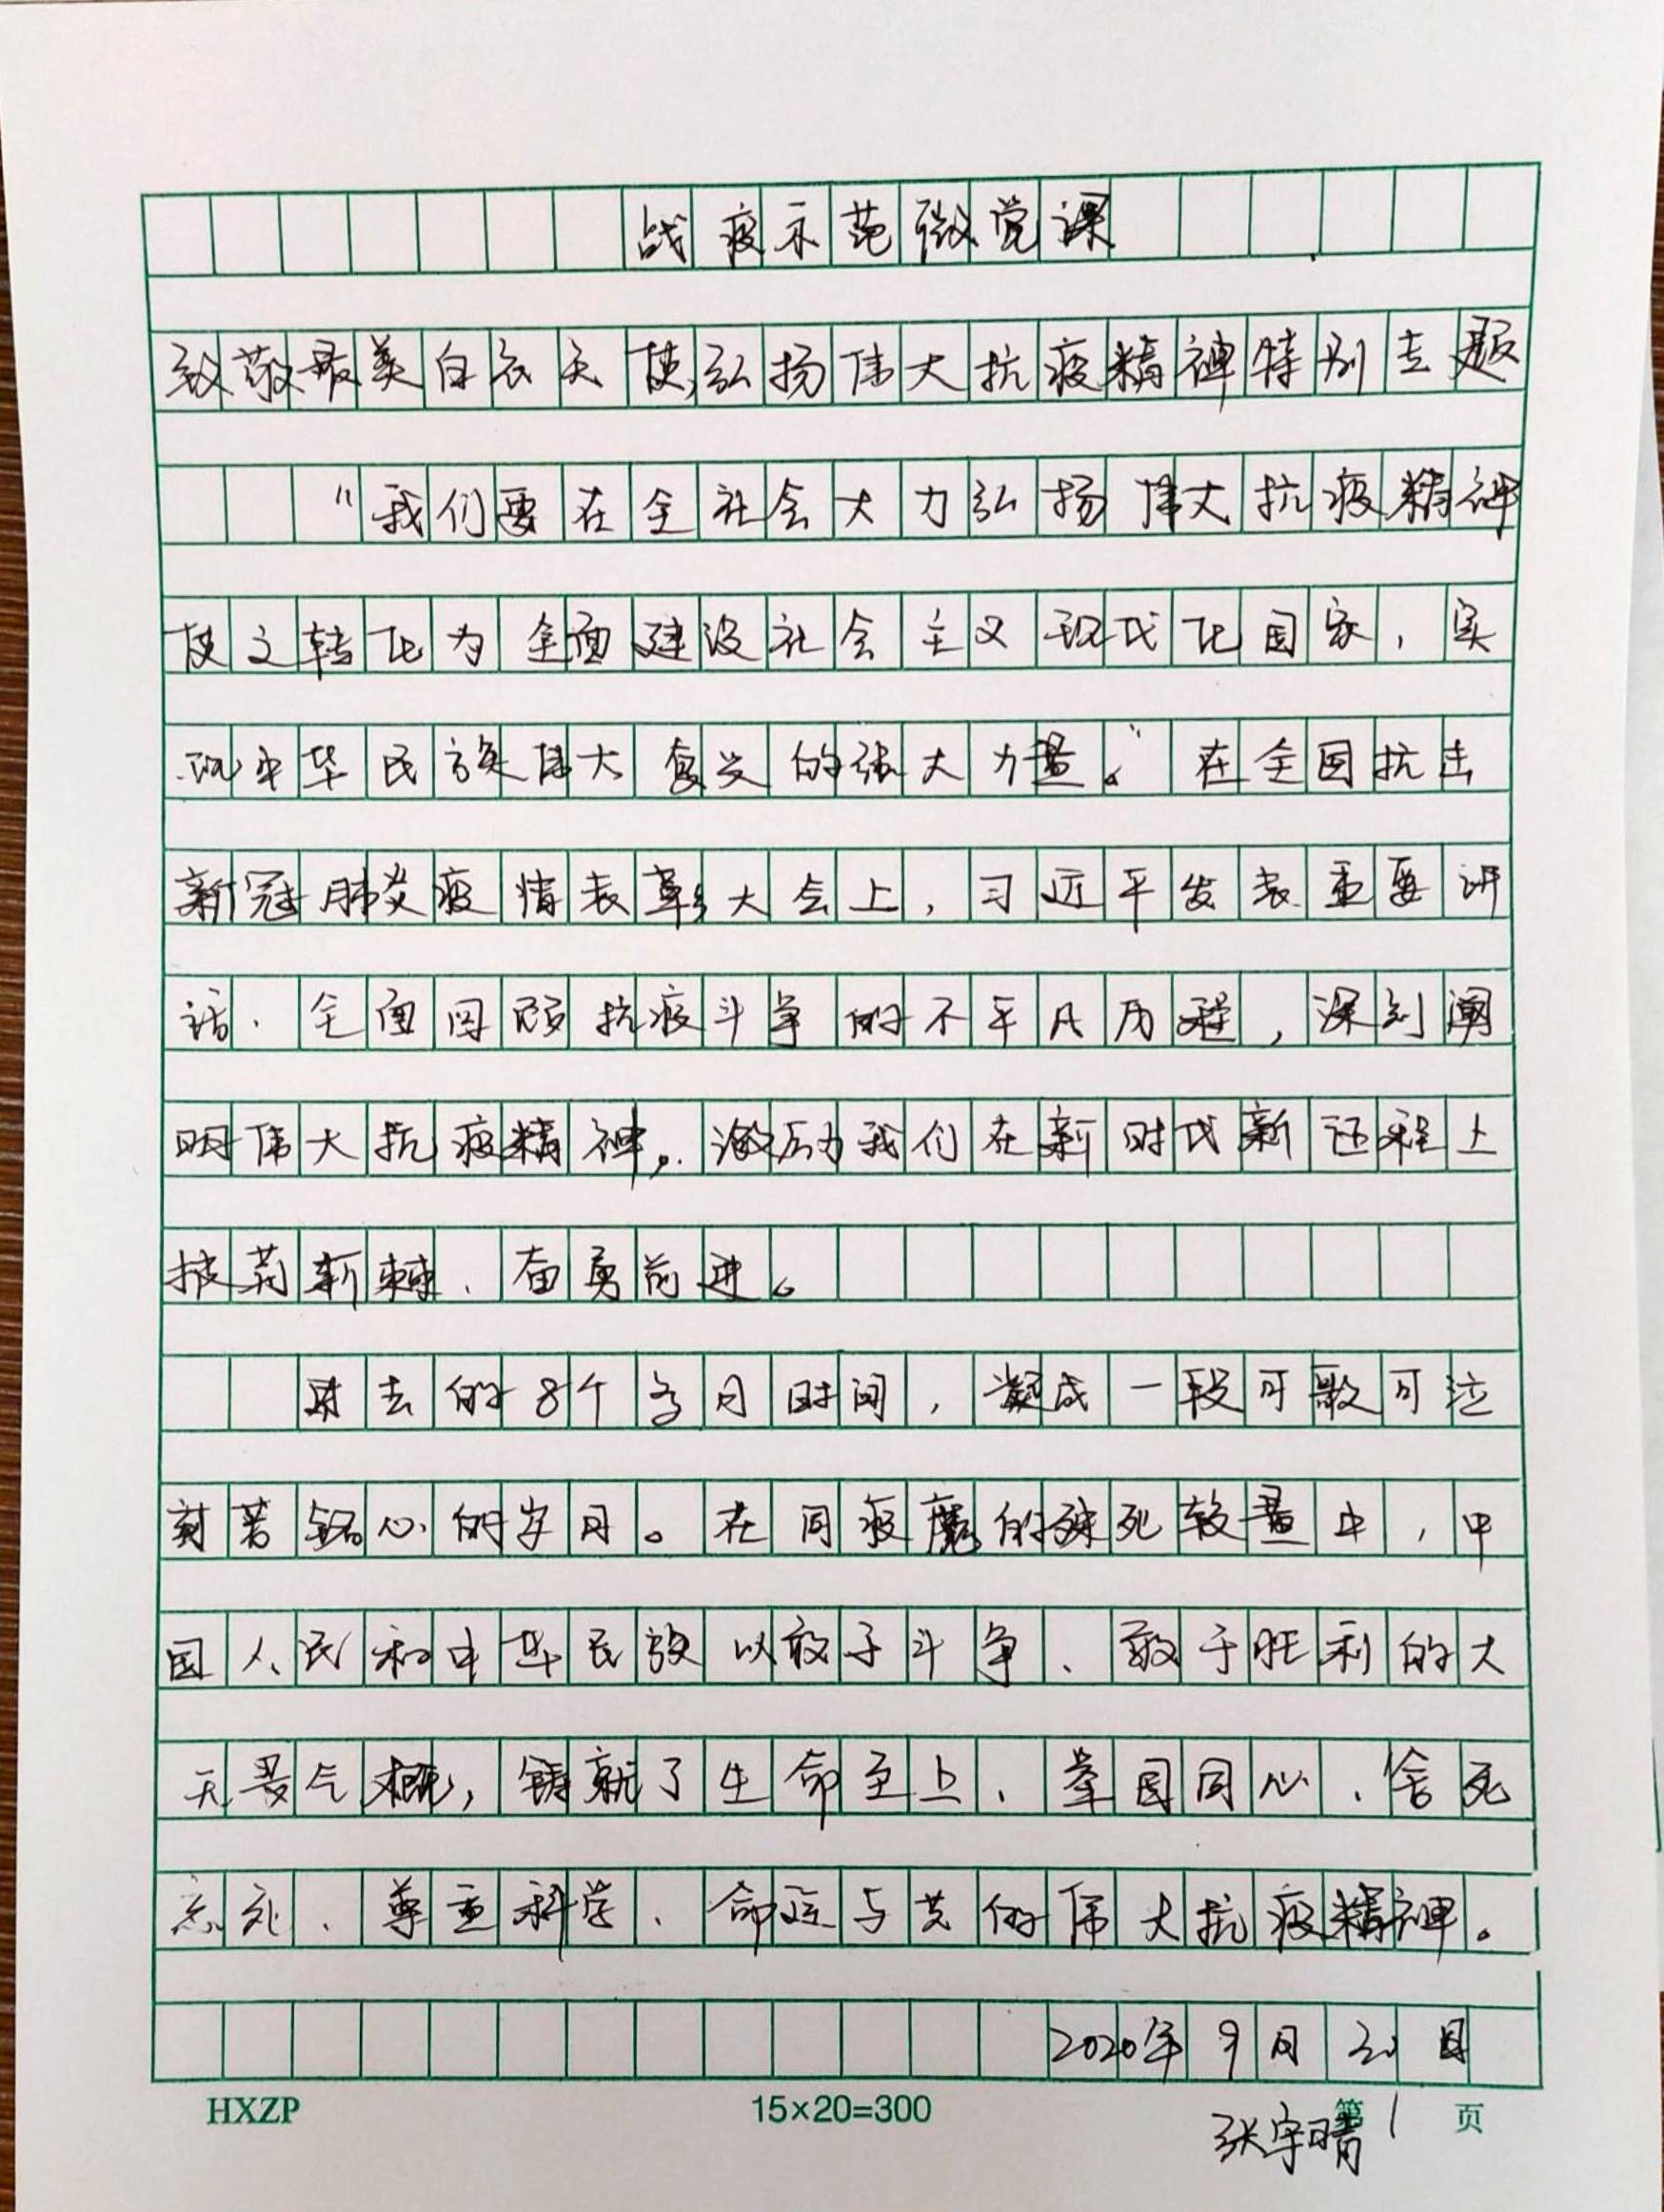 战疫示范微党课
致敬最美白衣天使,弘扬伟大抗疫精神特别专题
"我们要在全社会大力弘扬伟大抗疫精神
使之转化为全面建设社会主义现代化国家，实
现中华民族伟大复兴的强大力量。"在全国抗击
新冠肺炎疫情表彰大会上，习近平发表重要讲
话、全面回顾抗疫斗争的不平凡历程，深刻阐
明伟大抗疫精神，激励我们在新时代新征程上
披荆斩棘、奋勇前进。
过去的8个多月时间，凝成一段可歌可泣
刻苦铭心的岁月。在同疫魔的殊死较量中，中
国人民和中华民族以敢于斗争、敢于胜利的大
无畏气概，铸就了生命至上、举国同心、舍死
忘死、尊重科学、命运与共的伟大抗疫精神。
2020年9月20日
HXZP 15×20=300 第1页
张宇晴